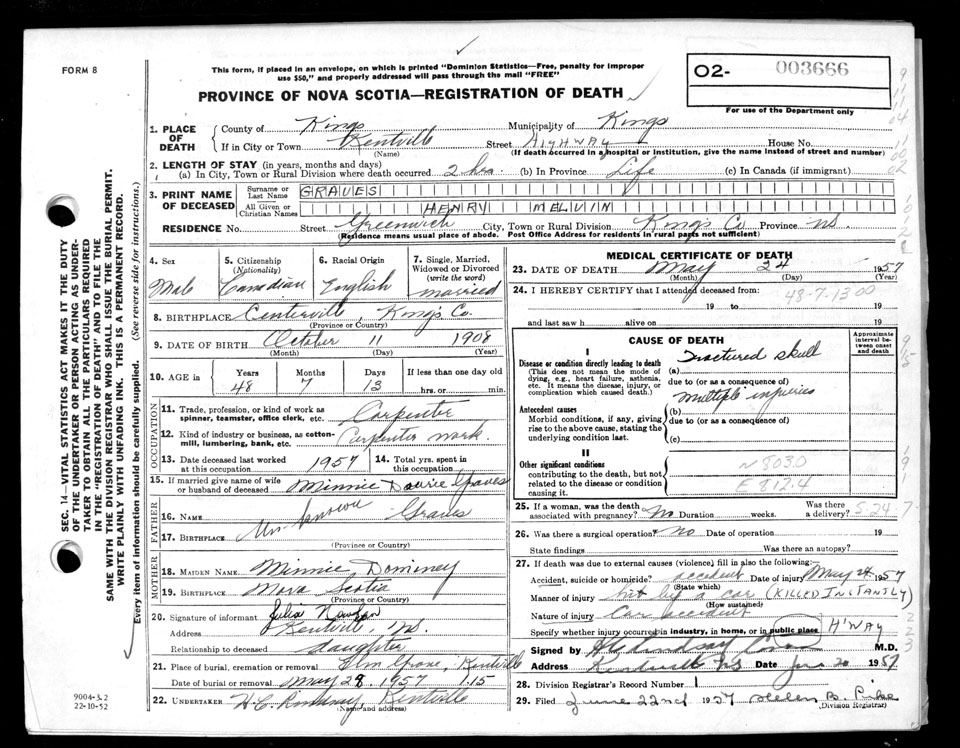 FORM 8
This form, if placed in an envelope, on which is printed "Dominion Statistics—Free, penalty for improper
use $50," and properly addressed will pass through the mail "FREE"
PROVINCE OF NOVA SCOTIA—REGISTRATION OF DEATH
02- 003666
For use of the Department only
1. PLACE OF DEATH
County of Kings Municipality of Kings
If in City or Town Kentville Street HIGHWAY House No.
(Name) (If death occurred in a hospital or institution, give the name instead of street and number)
2. LENGTH OF STAY (in years, months and days)
(a) In City, Town or Rural Division where death occurred 2 hrs. (b) In Province Life (c) In Canada (if immigrant)
3. PRINT NAME OF DECEASED
Surname or Last Name GRAVES
All Given or Christian Names HENRY MELVIN
RESIDENCE No. Street Greenwich City, Town or Rural Division Kings Co Province NS.
(Residence means usual place of abode. Post Office Address for residents in rural parts not sufficient)
4. Sex
Male
5. Citizenship (Nationality)
Canadian
6. Racial Origin
English
7. Single, Married, Widowed or Divorced (write the word)
married
8. BIRTHPLACE Centerville, Kings Co.
(Province or Country)
9. DATE OF BIRTH October 11 1908
(Month) (Day) (Year)
10. AGE in Years Months Days If less than one day old
48 7 13 hrs. or min.
OCCUPATION
11. Trade, profession, or kind of work as spinner, teamster, office clerk, etc. Carpenter
12. Kind of industry or business, as cotton-mill, lumbering, bank, etc. Carpenter work.
13. Date deceased last worked at this occupation 1957
14. Total yrs. spent in this occupation
15. If married give name of wife or husband of deceased Minnie Graves
FATHER
16. NAME Unknown Graves
17. BIRTHPLACE
(Province or Country)
MOTHER
18. MAIDEN NAME Minnie Dominey
19. BIRTHPLACE Nova Scotia
(Province or Country)
20. Signature of informant Julia
Address Kentville, NS.
Relationship to deceased daughter
21. Place of burial, cremation or removal Elm Grove, Kentville
Date of burial or removal May 28, 1957 1.15
22. UNDERTAKER Kentville
(Name and address)
MEDICAL CERTIFICATE OF DEATH
23. DATE OF DEATH May 24 1957
(Month) (Day) (Year)
24. I HEREBY CERTIFY that I attended deceased from
48-7-1300
19 to 19
and last saw h alive on 19
CAUSE OF DEATH
Approximate interval between onset and death
I
Disease or condition directly leading to death
(This does not mean the mode of dying, e.g., heart failure, asthenia, etc. It means the disease, injury, or complication which caused death.)
(a) Fractured skull
due to (or as a consequence of)
Antecedent causes
Morbid conditions, if any, giving rise to the above cause, stating the underlying condition last.
(b) Multiple injuries
due to (or as a consequence of)
(c)
II
Other significant conditions
contributing to the death, but not related to the disease or condition causing it.
N 803.0
E 812.4
25. If a woman, was the death associated with pregnancy? No Duration weeks. Was there a delivery?
5-24-7
26. Was there a surgical operation? no Date of operation 19
State findings Was there an autopsy?
27. If death was due to external causes (violence) fill in also the following:
Accident, suicide or homicide? accident Date of injury May 24 1957
(State which)
Manner of injury hit by a car (KILLED INSTANTLY)
(How sustained)
Nature of injury Car accident
Specify whether injury occurred in industry, in home, or in public place H'WAY
Signed by M.D.
Address Kentville NS Date 20 1957
28. Division Registrar's Record Number 1
29. Filed June 22nd 1957 Helen B. Pike
(Division Registrar)
SEC. 14—VITAL STATISTICS ACT MAKES IT THE DUTY
OF THE UNDERTAKER OR PERSON ACTING AS UNDER-
TAKER TO OBTAIN ALL THE PARTICULARS REQUIRED
IN THE "REGISTRATION OF DEATH" AND TO FILE THE
SAME WITH THE DIVISION REGISTRAR WHO SHALL ISSUE THE BURIAL PERMIT.
WRITE PLAINLY WITH UNFADING INK. THIS IS A PERMANENT RECORD.
Every item of information should be carefully supplied. (See reverse side for instructions.)
9004-3.2
22-10-52